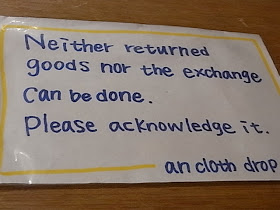 Neither returned
goods nor the exchange
can be done.
Please acknowledge it.
an cloth drop